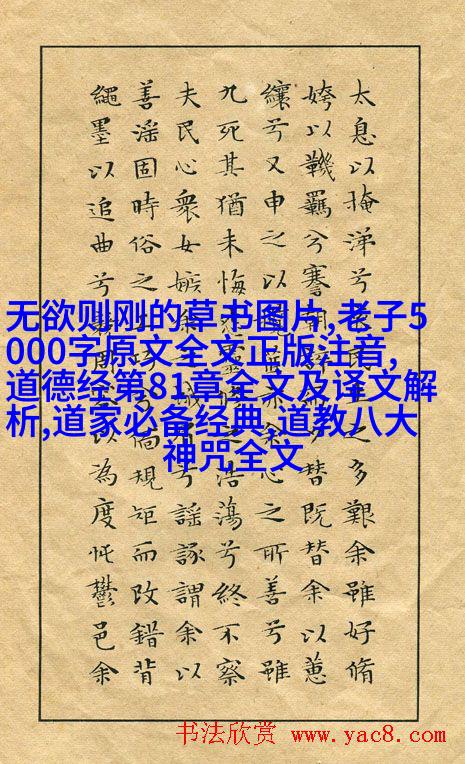 太息以掩涕兮民生之多艱余雖好脩
姱以鞿羈兮謇朝夕替既替余以蕙
纕兮又申之以心之所善兮雖
九死其猶未悔怨之浩蕩兮終不察
夫民心衆女嫉余兮謠諑謂余以
善淫固時俗之工巧兮偭規矩而改錯背
繩墨以追曲兮競周容以為度忳鬱邑余
无欲则刚的草书图片,老子5
000字原文全文正版注音,
道德经第81章全文及译文解
析,道家必备经典,道教八大
神咒全文
书法欣赏 www.yac8.com